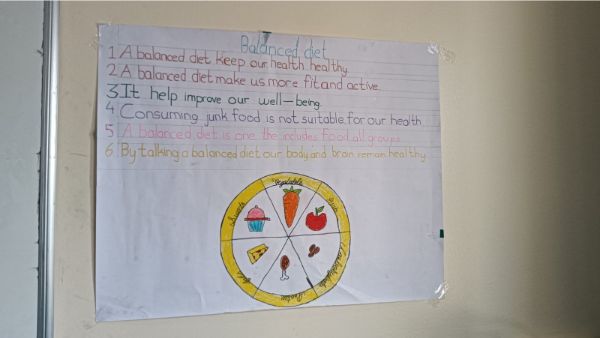 Balanced diet
1 A balanced diet keep our health healthy.
2 A balanced diet make us more fit and active.
3. It help improve our well-being.
4 Consuming junk food is not suitable for our health
5 A balanced diet is one the includes Food all groups
6. By talking a balanced diet our body and brain remain healthy
Vegetable
Protein